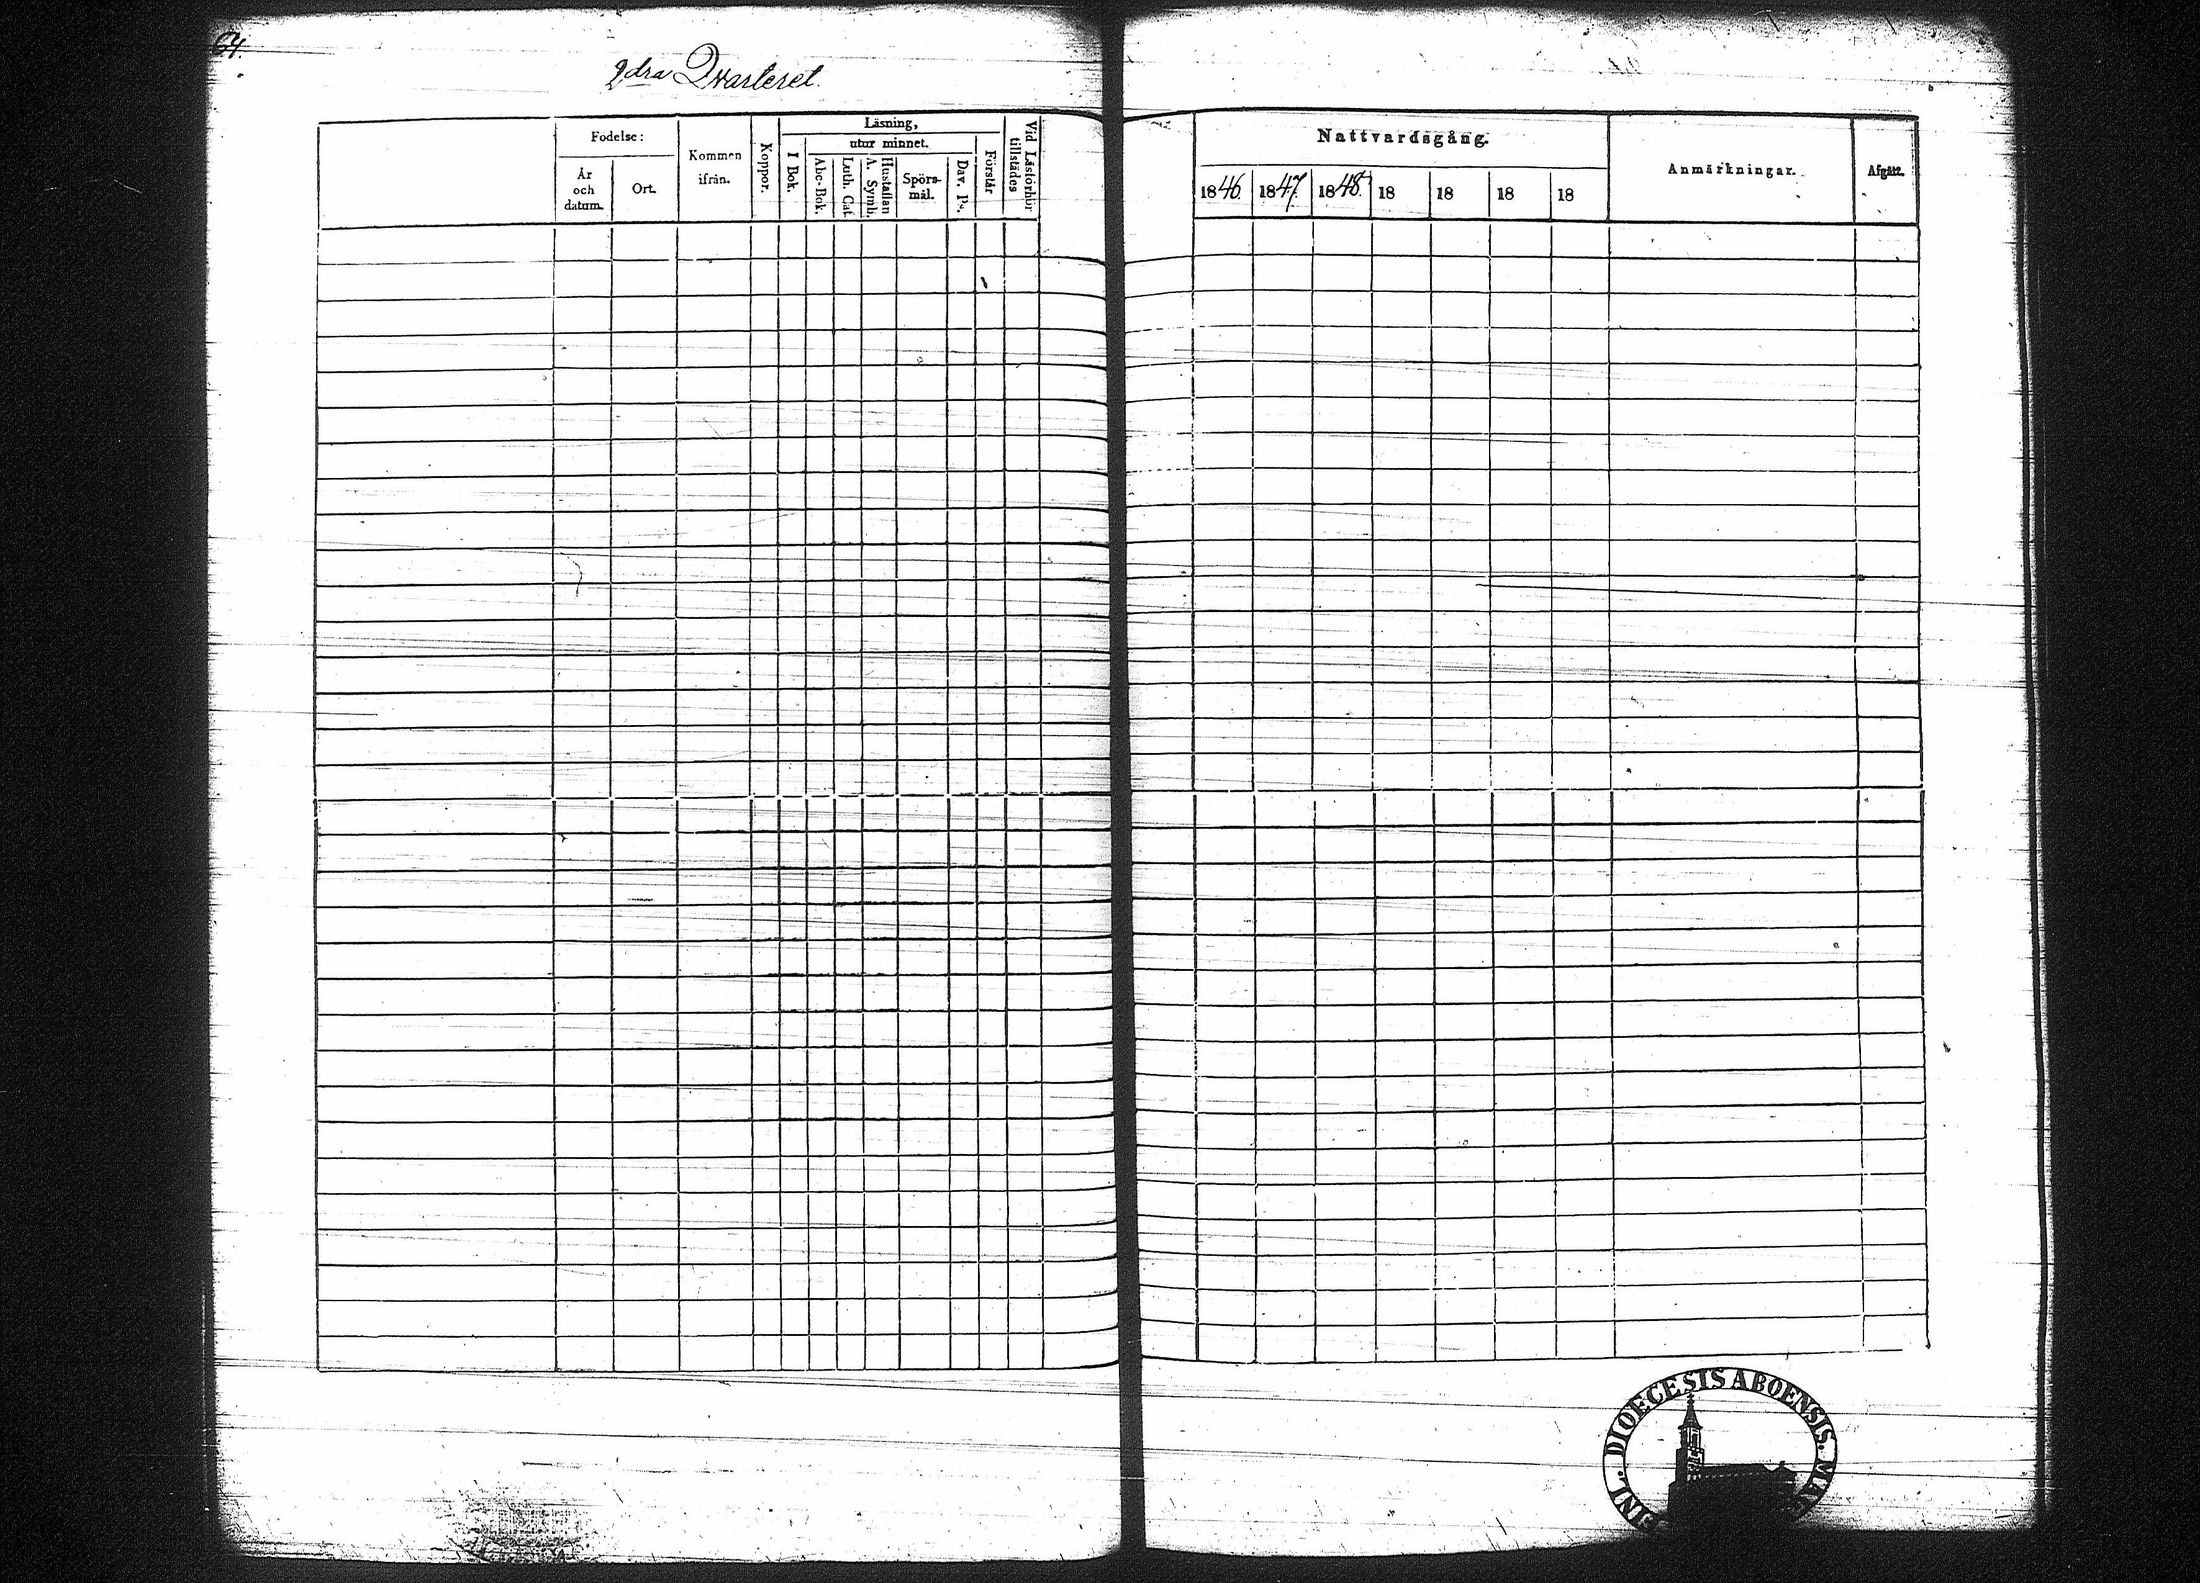 64.
2dra Qvarteret.
Födelse:
År
och
datum.
Ort.
Kommen
ifrån.
Koppor.
Läsning,
utur minnet.
I Bok.
Abc-Bok.
Luth. Cat.
Hustaflan
A. Symb.
Spörs-
mål.
Dav. Ps.
Förstår
Vid Läsförhör
tillstädes
Nattvardsgång.
1846. 1847. 1848. 18 18 18 18
Anmärkningar.
Afgått.
DIOECESIS ABOENSIS.